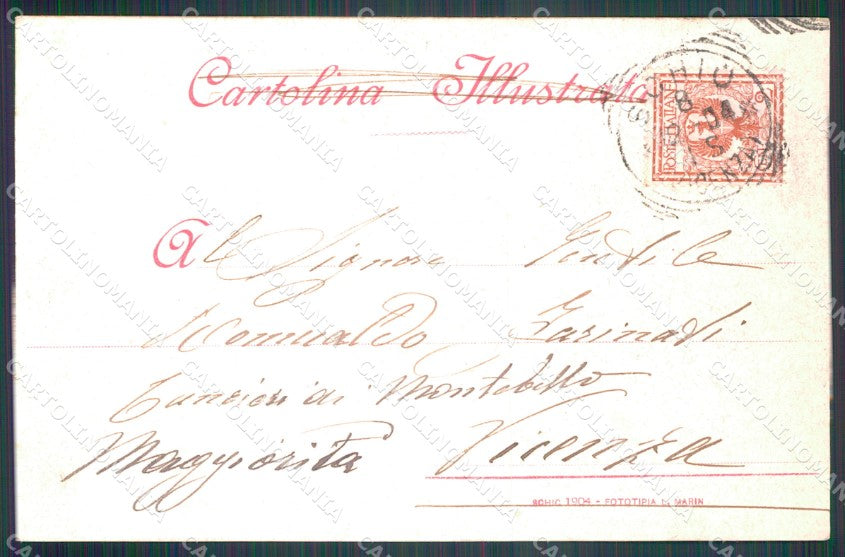 Cartolina Illustrata
POSTE ITALIANE
SCHIO
8
04
Al Signor Gentile
Romualdo Farinati
Lancieri di Montebello
Maggiorità Vicenza
SCHIO 1904 - FOTOTIPIA D. MARIN
CARTOLINOMANIA